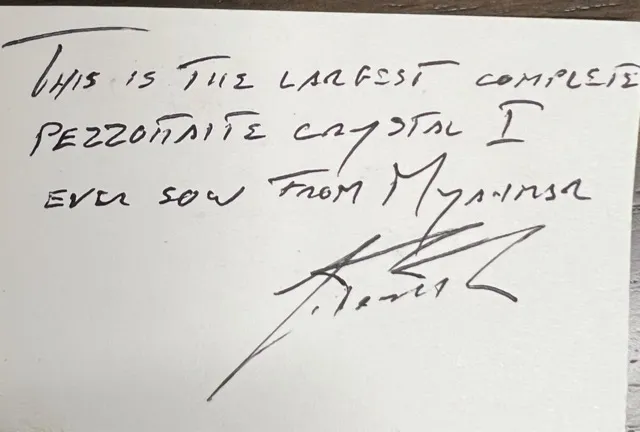 THIS IS THE LARGEST COMPLETE
PEZZOTTAITE CRYSTAL I
EVER SOW FROM MYANMAR